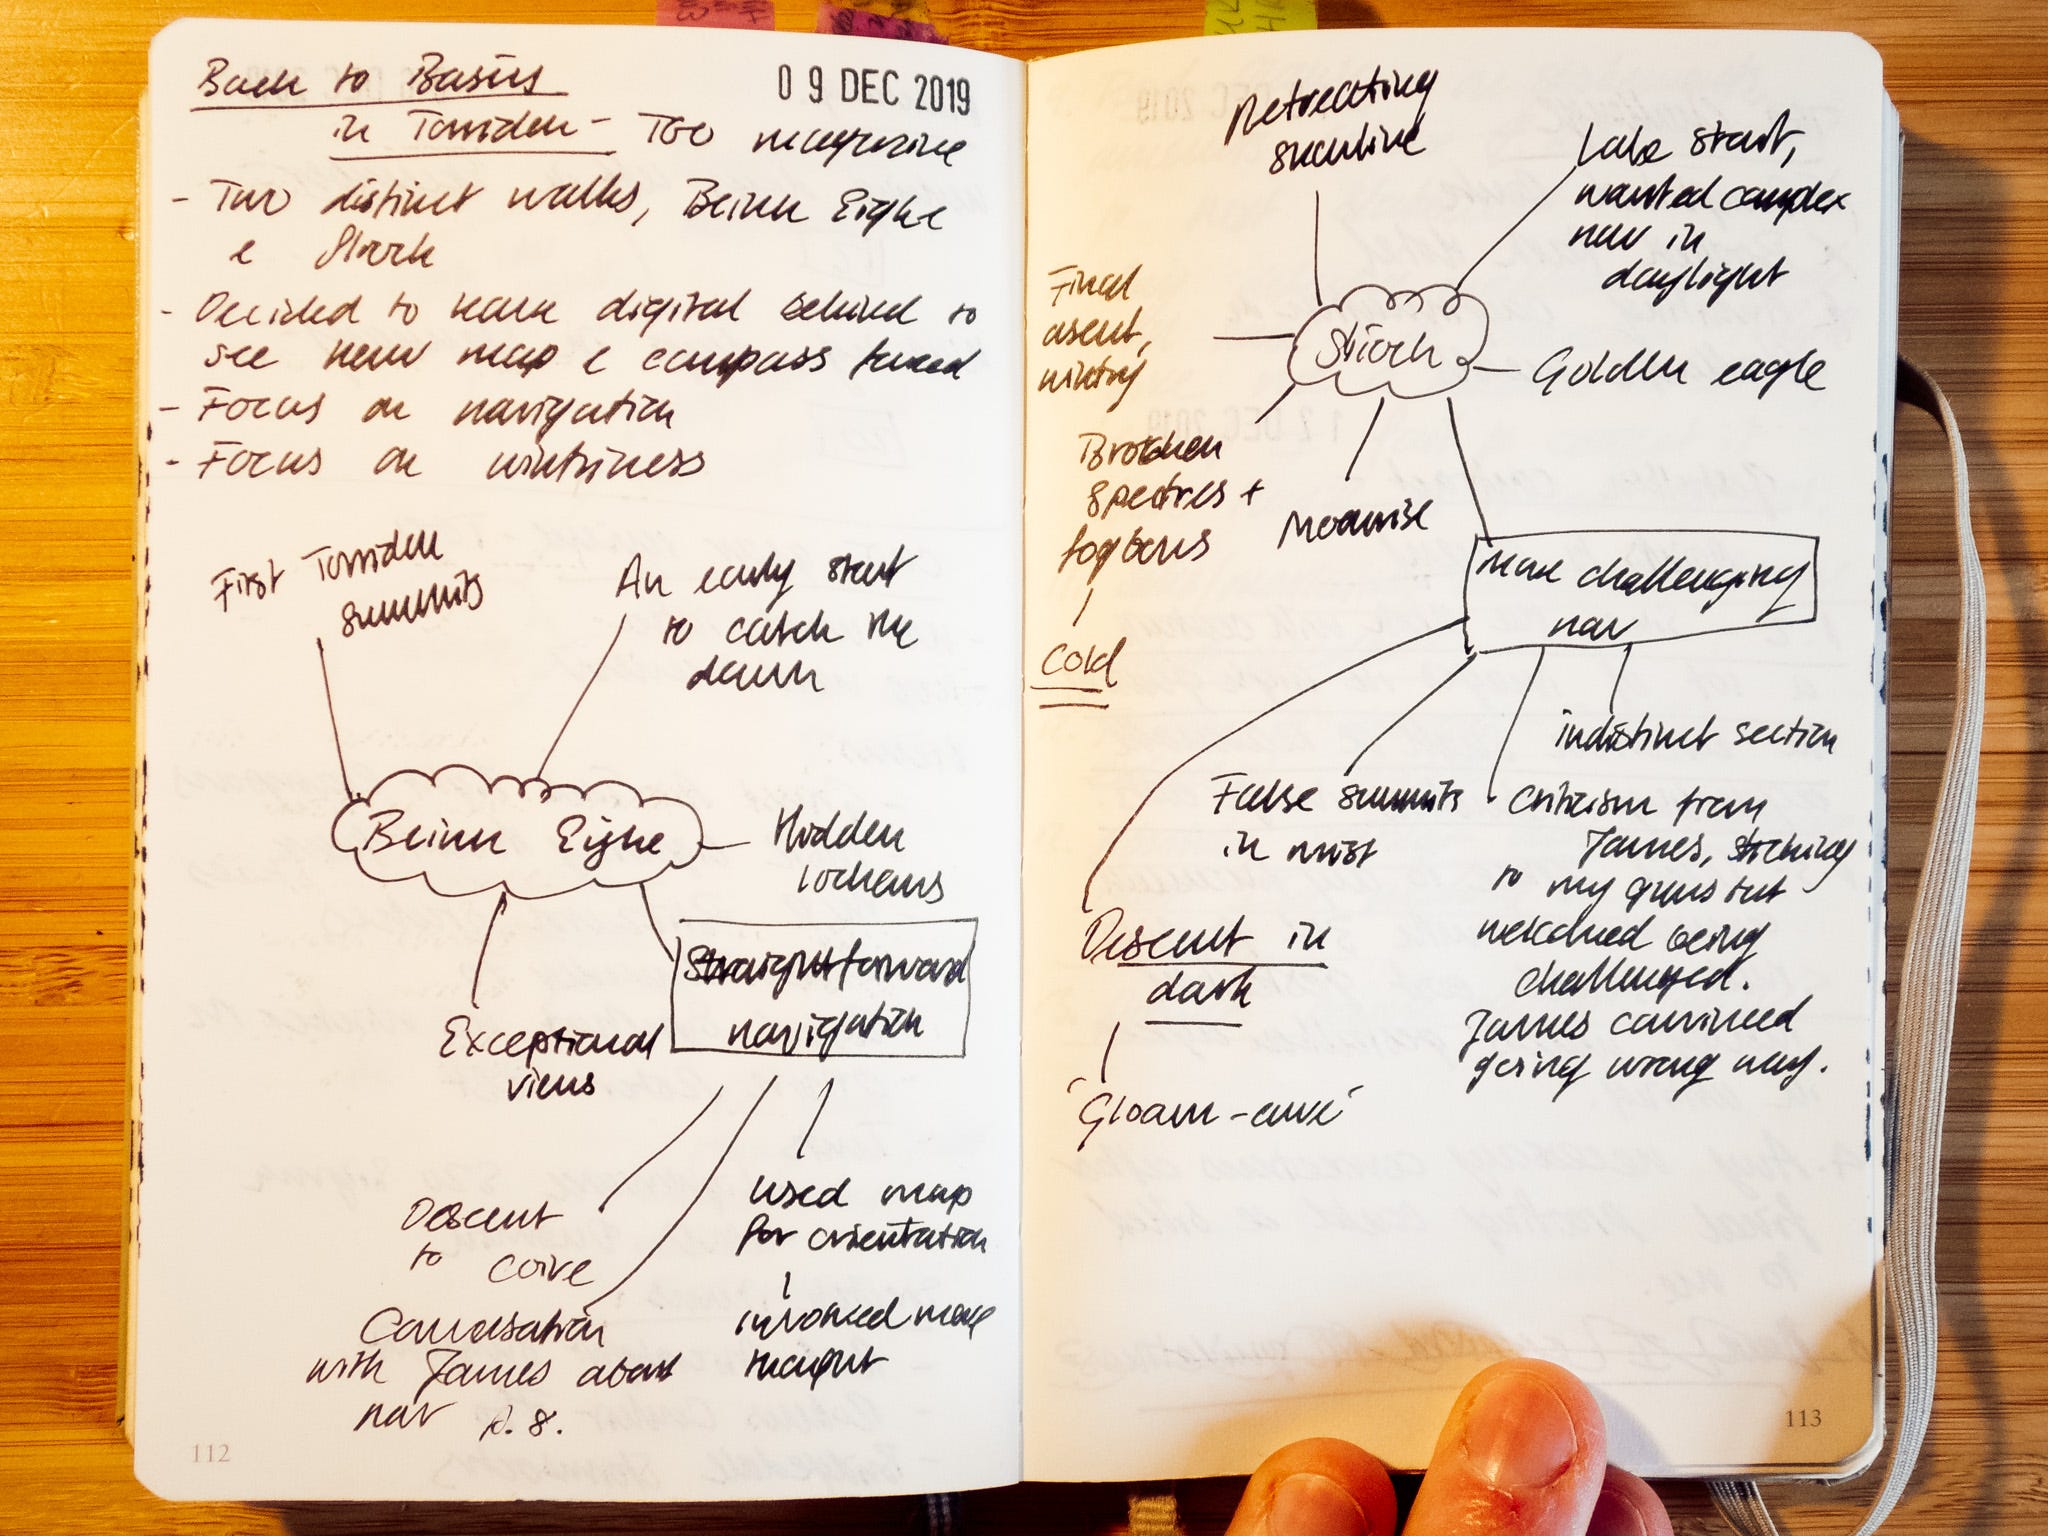 Back to Basics
09 DEC 2019
in Torridon - TGO magazine
- Two distinct walks, Beinn Eighe
& Slioch
- Decided to leave digital behind to
see how map & compass fared
- Focus on navigation
- Focus on wintriness
First Torridon
summits
An early start
to catch the
dawn
Beinn Eighe
Hidden
lochans
Straightforward
navigation
Exceptional
views
Descent
to coire
Conversation
with James about
nav p. 8.
used map
for orientation
involved more
thought
112
Retreating
snowline
Late start,
wanted complex
nav in
daylight
Final
ascent,
wintry
Slioch
Golden eagle
Brocken
spectres +
fogbows
Cold
Moonrise
More challenging
nav
indistinct section
False summits
in mist
Criticism from
James, sticking
to my guns but
welcomed being
challenged.
James convinced
going wrong way.
Descent in
dark
'Gloam-
113